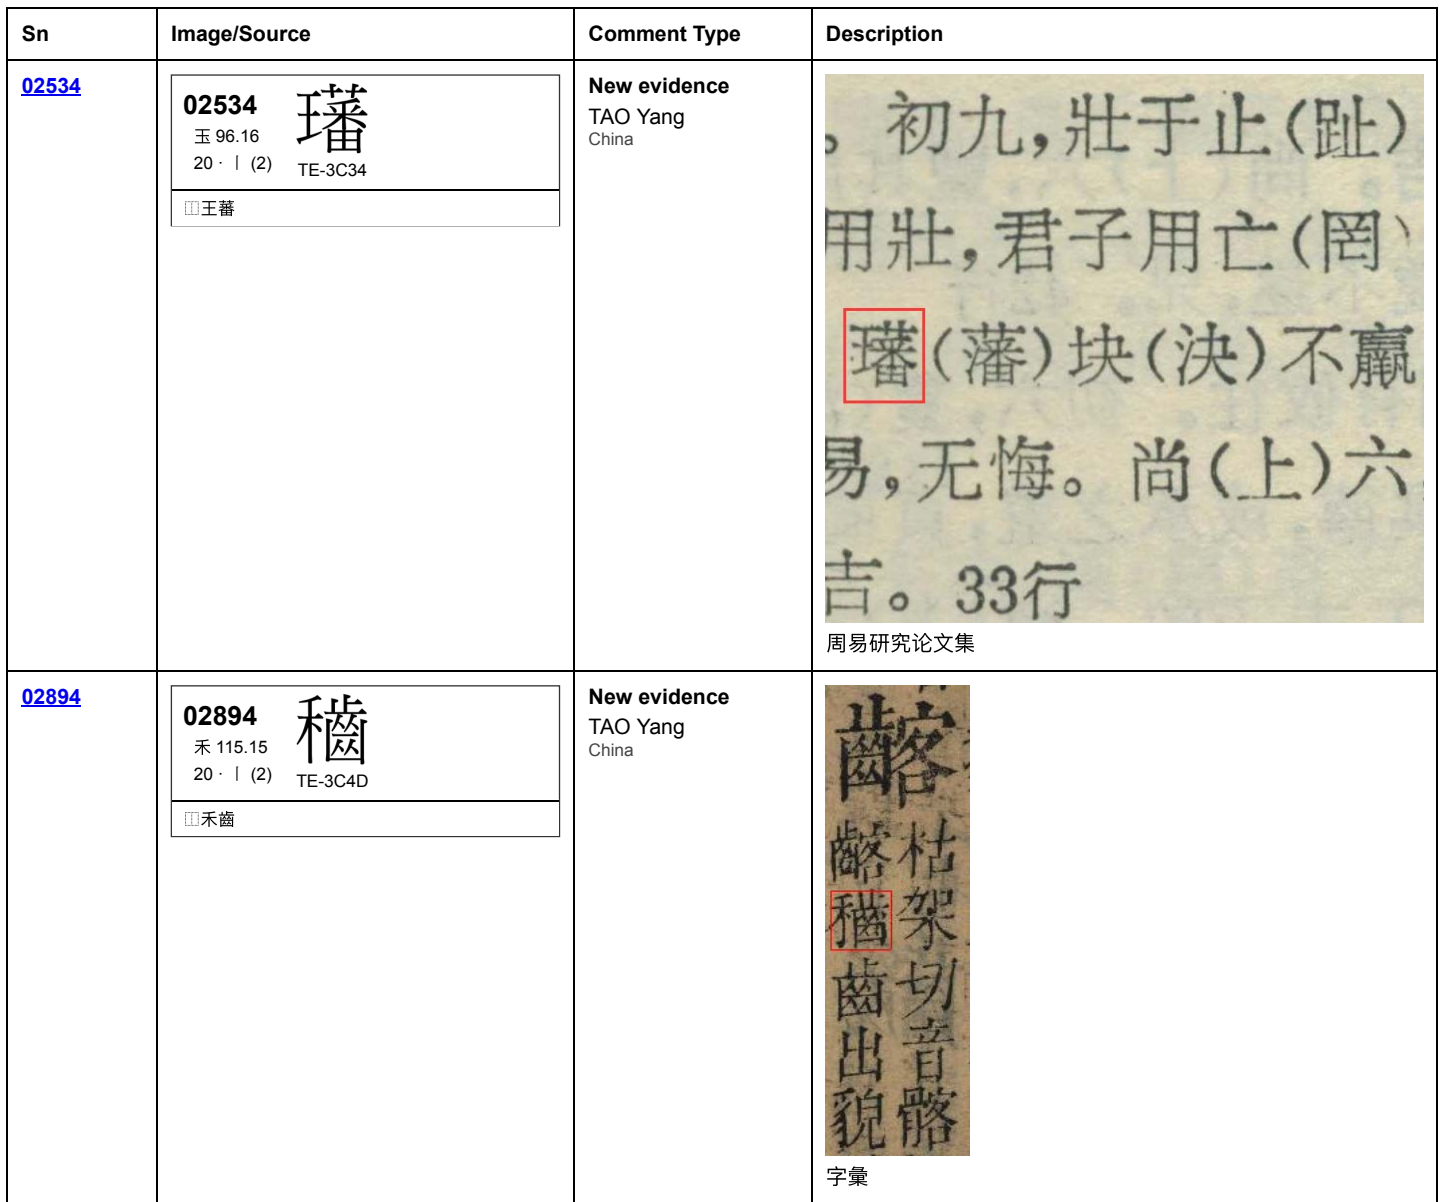 Sn Image/Source Comment Type Description
02534
02534
玉 96.16
20 · 丨 (2)
TE-3C34
⿰王蕃
New evidence
TAO Yang
China
。初九,壯于止(趾)
用壯,君子用亡(罔)
(藩)块(決)不羸
易,无悔。尚(上)六
吉。33行
周易研究论文集
02894
02894
禾 115.15
20 · 丨 (2)
TE-3C4D
⿰禾齒
New evidence
TAO Yang
China
枯架切音髂
齒出貌
字彙